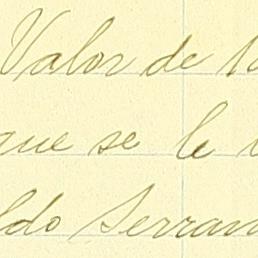 Valor de
que se le
ldo Serran